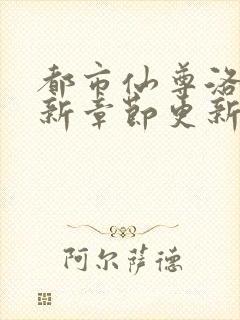 都市仙尊洛
新章节更新
阿尔萨德